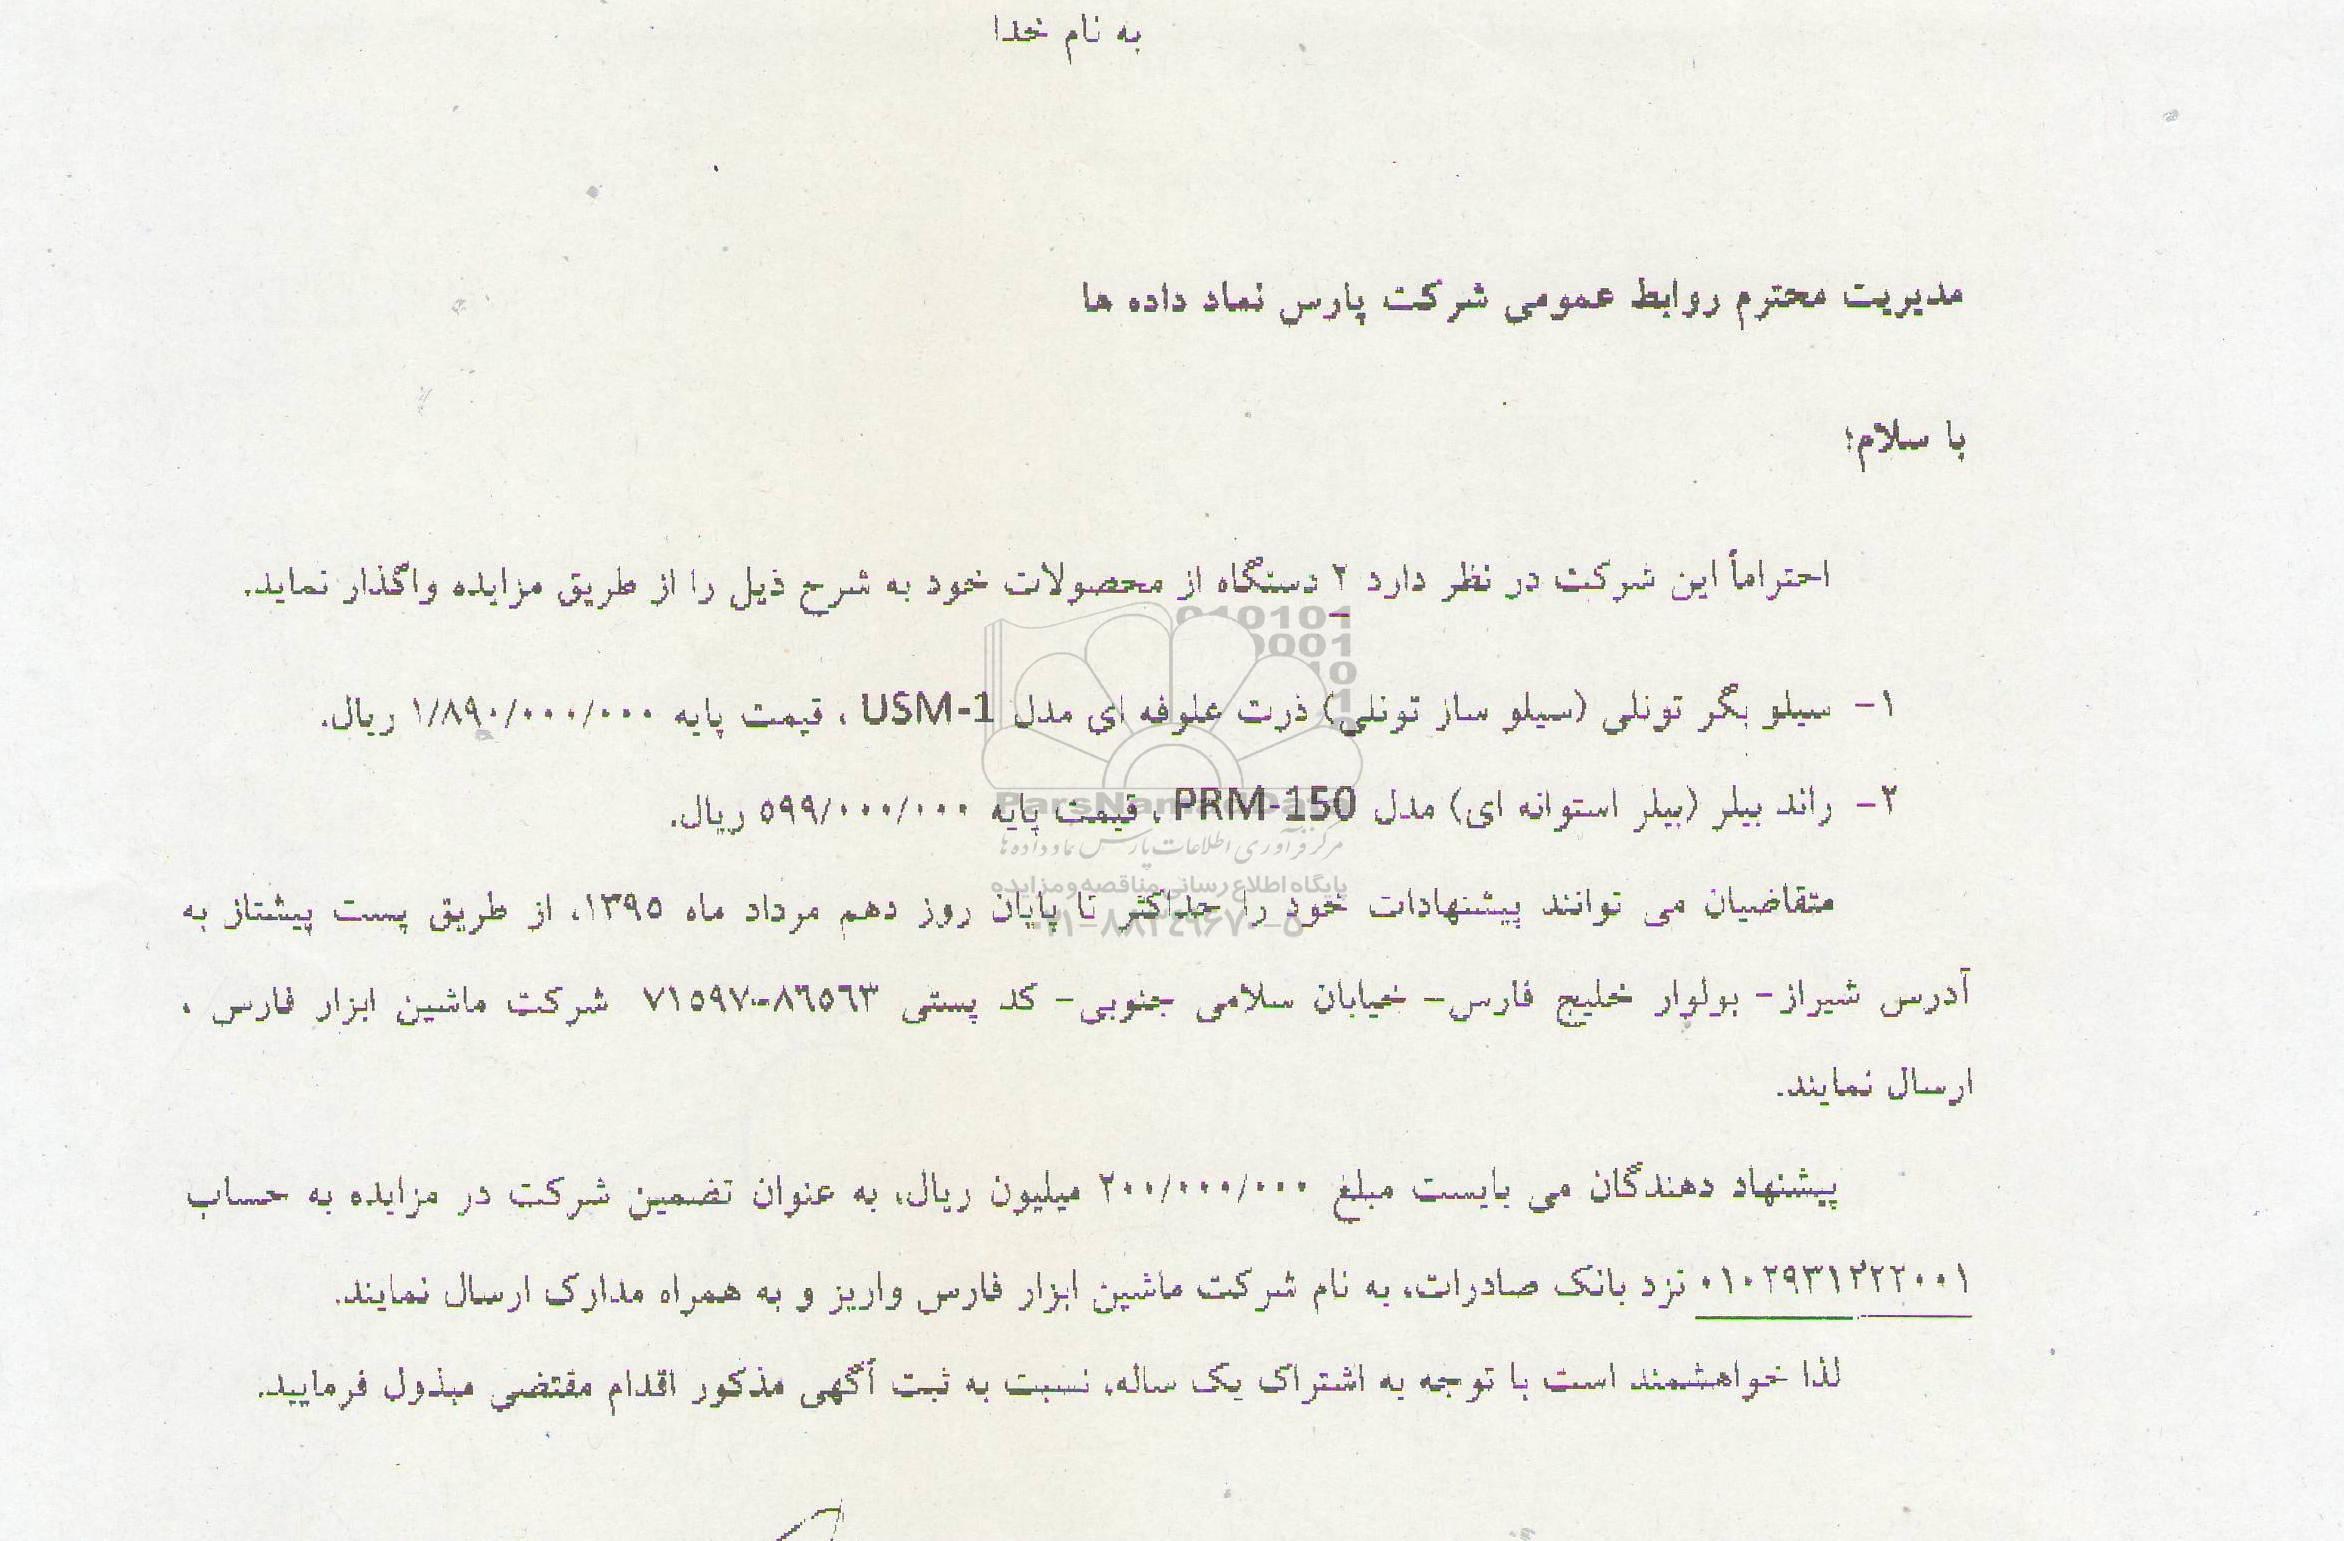 به نام خدا
مدیریت محترم روابط عمومی شرکت پارس نماد داده ها
با سلام؛
احتراماً این شرکت در نظر دارد ۲ دستگاه از محصولات خود به شرح ذیل را از طریق مزایده واگذار نماید.
۱- سیلو بگر تونلی (سیلو ساز تونلی) ذرت علوفه ای مدل USM-1 ، قیمت پایه ۱/۸۹۰/۰۰۰/۰۰۰ ریال.
۲- راند بیلر (بیلر استوانه ای) مدل PRM-150 ، قیمت پایه ۵۹۹/۰۰۰/۰۰۰ ریال.
ParsNamadData
مرکز فرآوری اطلاعات پارس نماد داده ها
پایگاه اطلاع رسانی مناقصه و مزایده
متقاضیان می توانند پیشنهادات خود را حداکثر تا پایان روز دهم مرداد ماه ۱۳۹۵، از طریق پست پیشتاز به
۰۲۱-۸۸۳۴۹۶۷۰-۵
آدرس شیراز- بولوار خلیج فارس- خیابان سلامی جنوبی- کد پستی ۸۶۵۶۳-۷۱۵۹۷ شرکت ماشین ابزار فارس ،
ارسال نمایند.
پیشنهاد دهندگان می بایست مبلغ ۲۰۰/۰۰۰/۰۰۰ میلیون ریال، به عنوان تضمین شرکت در مزایده به حساب
۰۱۰۲۹۳۱۲۲۲۰۰۱ نزد بانک صادرات، به نام شرکت ماشین ابزار فارس واریز و به همراه مدارک ارسال نمایند.
لذا خواهشمند است با توجه به اشتراک یک ساله، نسبت به ثبت آگهی مذکور اقدام مقتضی مبذول فرمایید.